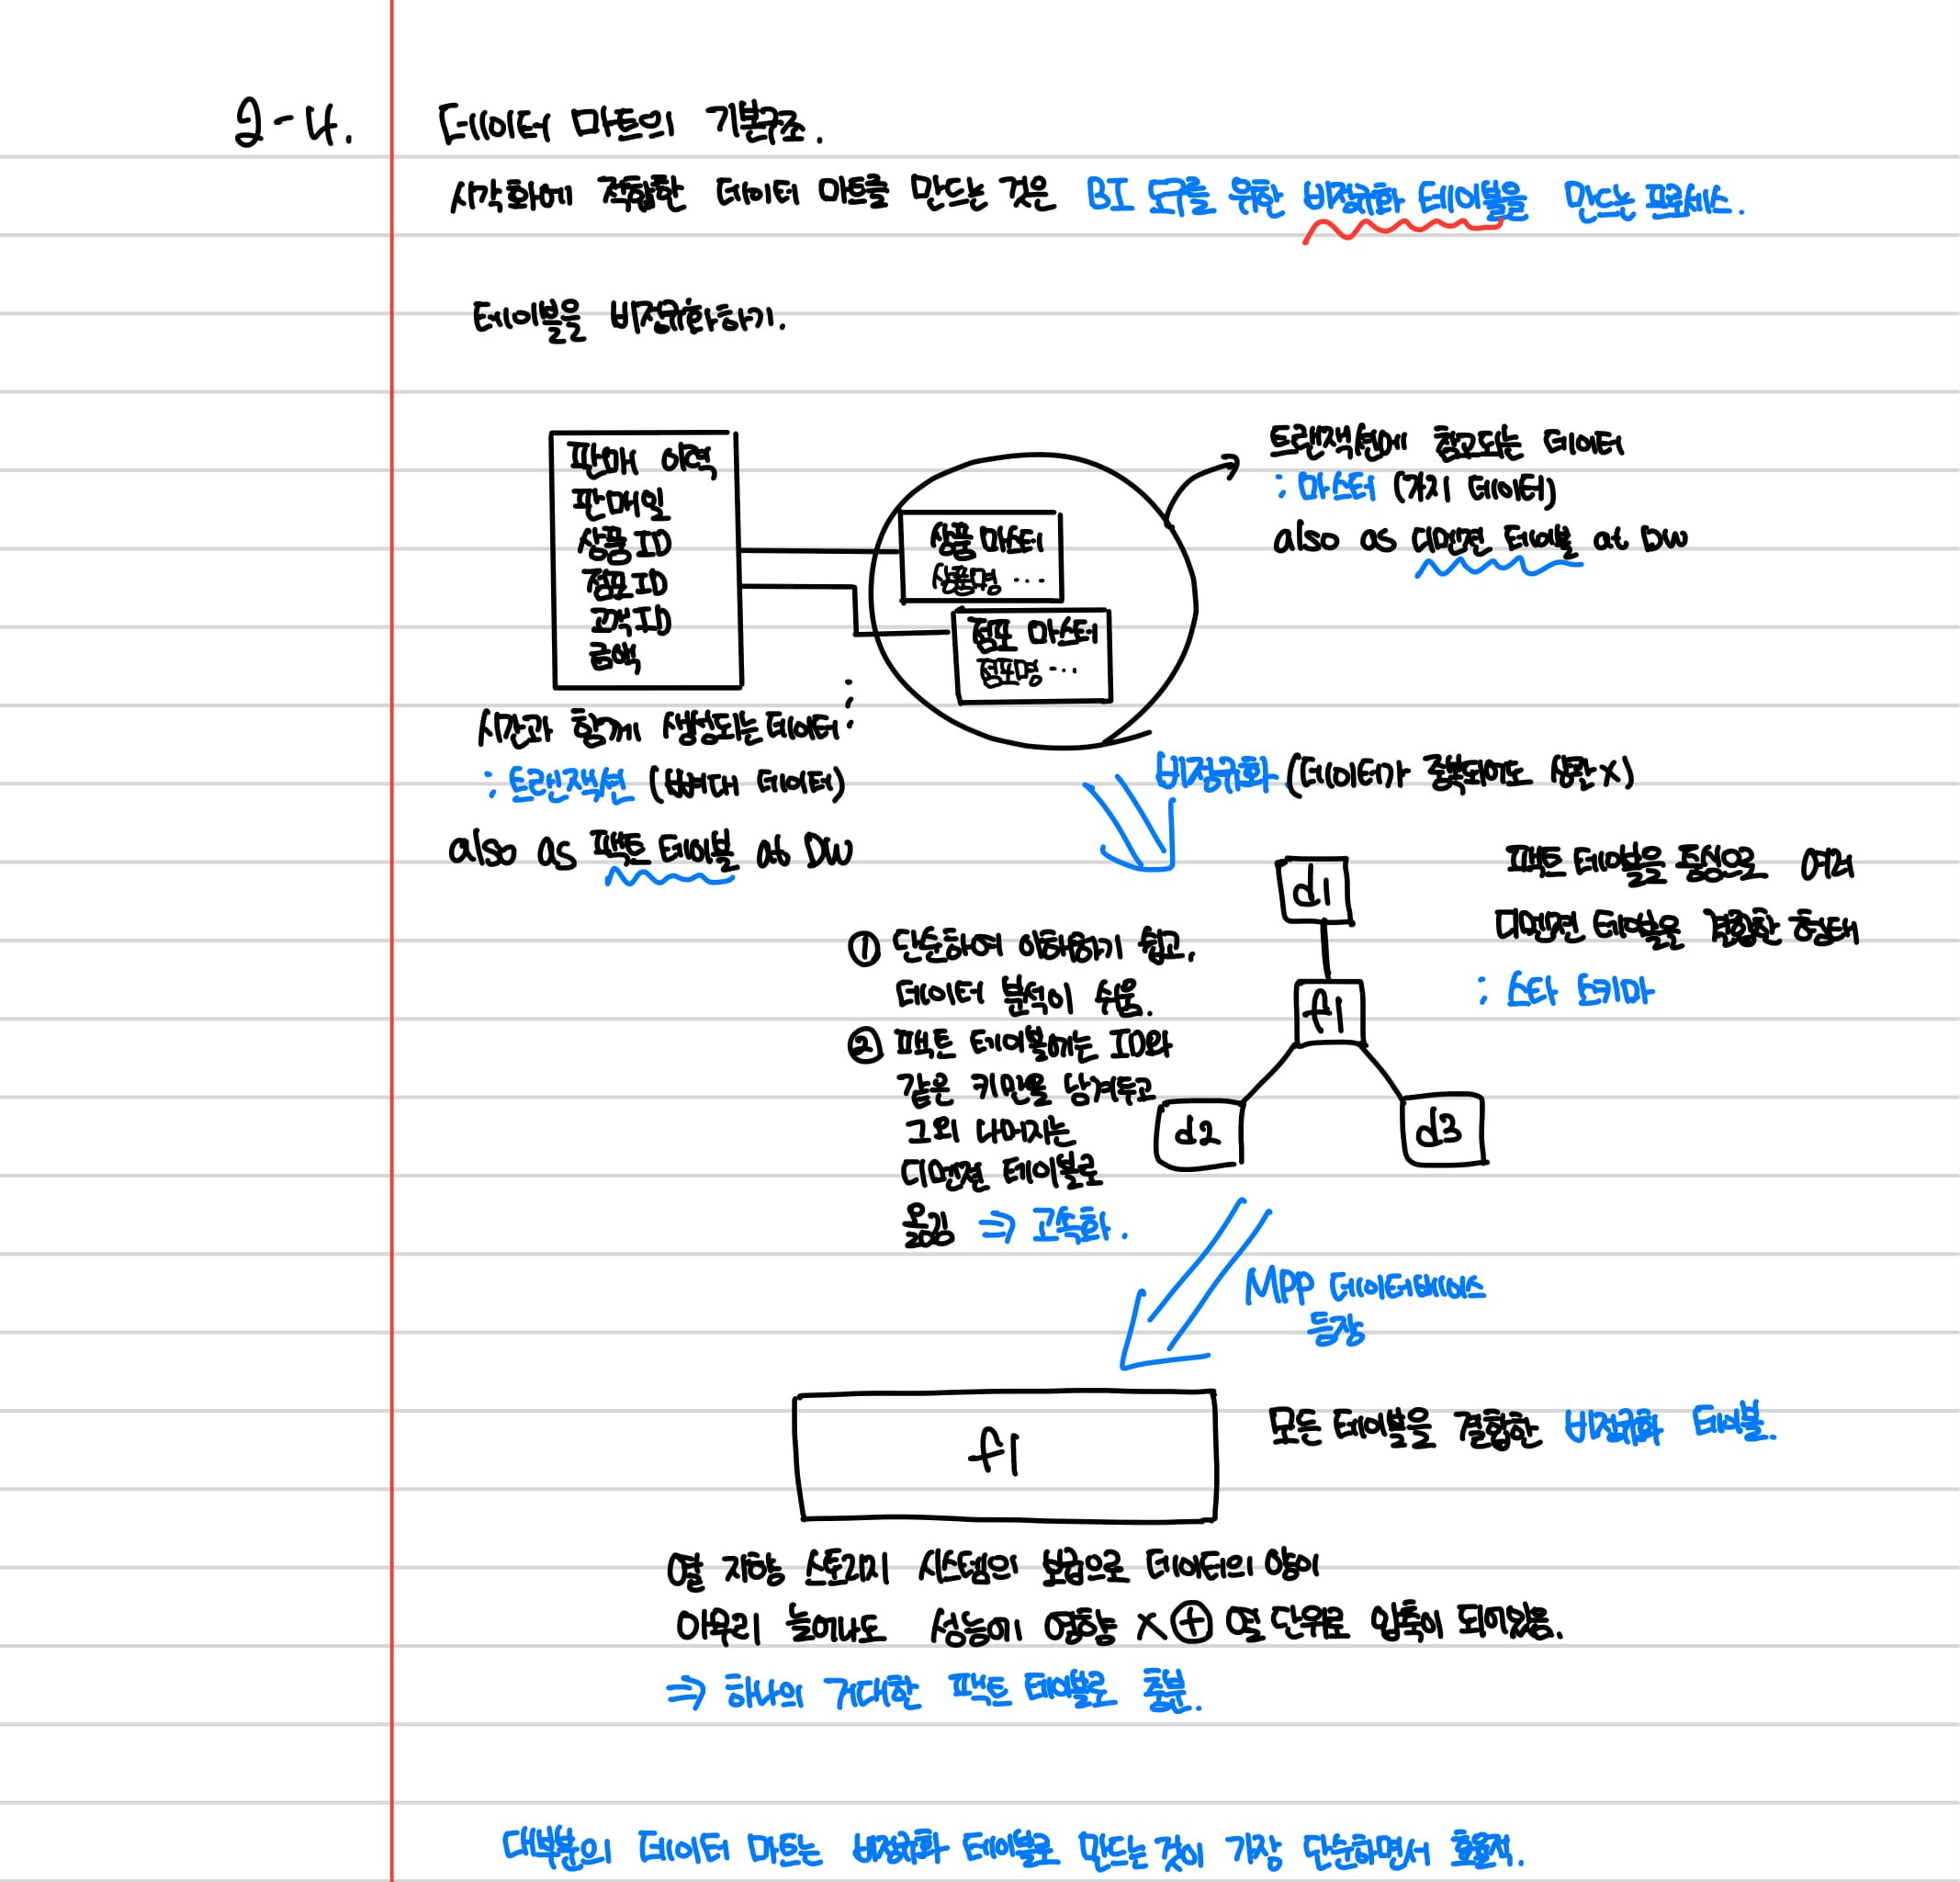 2-4. 데이터 마트의 기본구조.
시각화에 적합한 데이터 마트를 만드는 것은 BI 도구를 위한 비정규화 테이블을 만드는 프로세스.
테이블을 비정규화하기.
판매 이력
판매일
상품ID
점포ID
고객ID
금액
상품 마스터
상품명 ...
점포 마스터
점포명 ...
트랜잭션에 참고되는 데이터
: 마스터 (가지 데이터)
also as 디멘젼 테이블 at DW
시간과 함께 생성되는 데이터
: 트랜잭션 (뼈대 데이터)
also as 팩트 테이블 at DW
비정규화 (데이터가 중복되어도 상관 X)
팩트 테이블을 중심으로 여러
디멘젼 테이블을 결합한 형태
: 스타 스키마
d1
f1
d2
d3
① 단순하여 이해하기 쉽고,
데이터 분석이 쉬움.
② 팩트 테이블에는 ID와
같은 키만을 남겨두고
그외 나머지는
디멘젼 테이블로
옮김 ⇒ 고속화.
MPP 데이터베이스
등장
f1
모든 테이블을 결합한 비정규화 테이블.
열 지향 스토리지 시스템의 보급으로 데이터의 양이
아무리 늘어나도 성능에 영향 X ⊕ 열 단위로 압축이 되어있음.
⇒ 하나의 거대한 팩트 테이블로 충분.
대부분의 데이터 마트는 비정규화 테이블로 만드는 것이 가장 단순하면서 효율적.